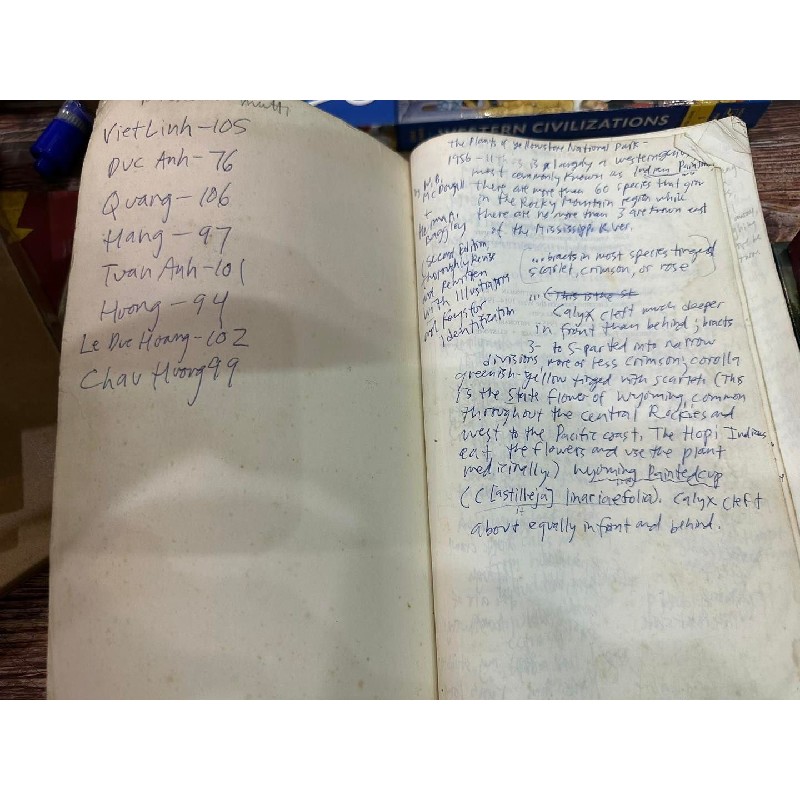 multi
VietLinh-105
Duc Anh-76
Quang-106
Hang-97
Tuan Anh-101
Huong-94
Le Duc Hoang-102
Chau Huong 99
WESTERN CIVILIZATIONS
The Plants of Yellowstone National Park-
1956 - is a largely a western
most commonly known as Indian
there are more than 60 species that grow
in the Rocky Mountain region while
there are no more than 3 are known east
of the Mississippi River.
by M.B.
McDougall
+
Herma A.
Baggley
Second Edition
thoroughly Revise
and Rewritten
with Illustrations
and Keys for
identification
...bracts in most species tinged
scarlet, crimson, or rose
... (This is the St
Calyx cleft much deeper
in front than behind; bracts
3- to 5-parted into narrow
divisions more or less crimson; corolla
greenish-yellow tinged with scarlet. (This
is the State flower of Wyoming, common
throughout the central Rockies and
west to the Pacific coast. The Hopi Indians
eat the flowers and use the plant
medicinally.) Wyoming Paintedcup
(C[astilleja] linariaefolia). Calyx cleft
about equally in front and behind.